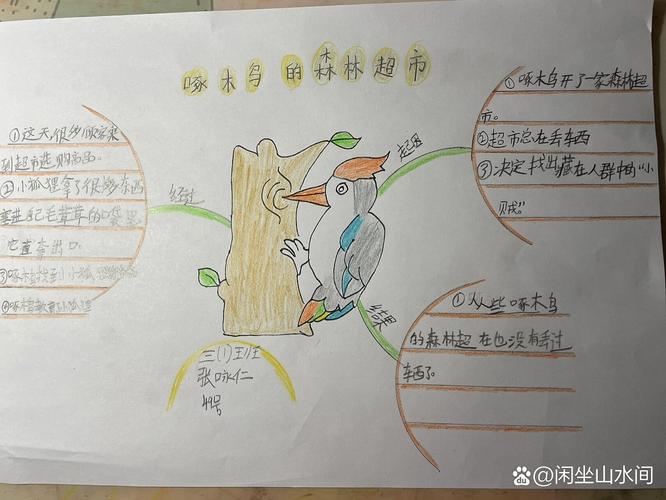 啄木鸟的森林超市
①啄木鸟开了一家森林超
市。
②超市总在丢东西
③决定找出藏在人群中的“小
贼”。
起因
①这天很多顾客来
到超市选购商品。
②小狐狸拿了很多东西
塞进自己毛茸茸的
它直奔出口。
③啄木鸟找到小狐
④啄木鸟
经过
结果
①从些啄木鸟
的森林超 在也没有丢过
东西了。
三(1)班
张咏仁
49号
闲坐山水间